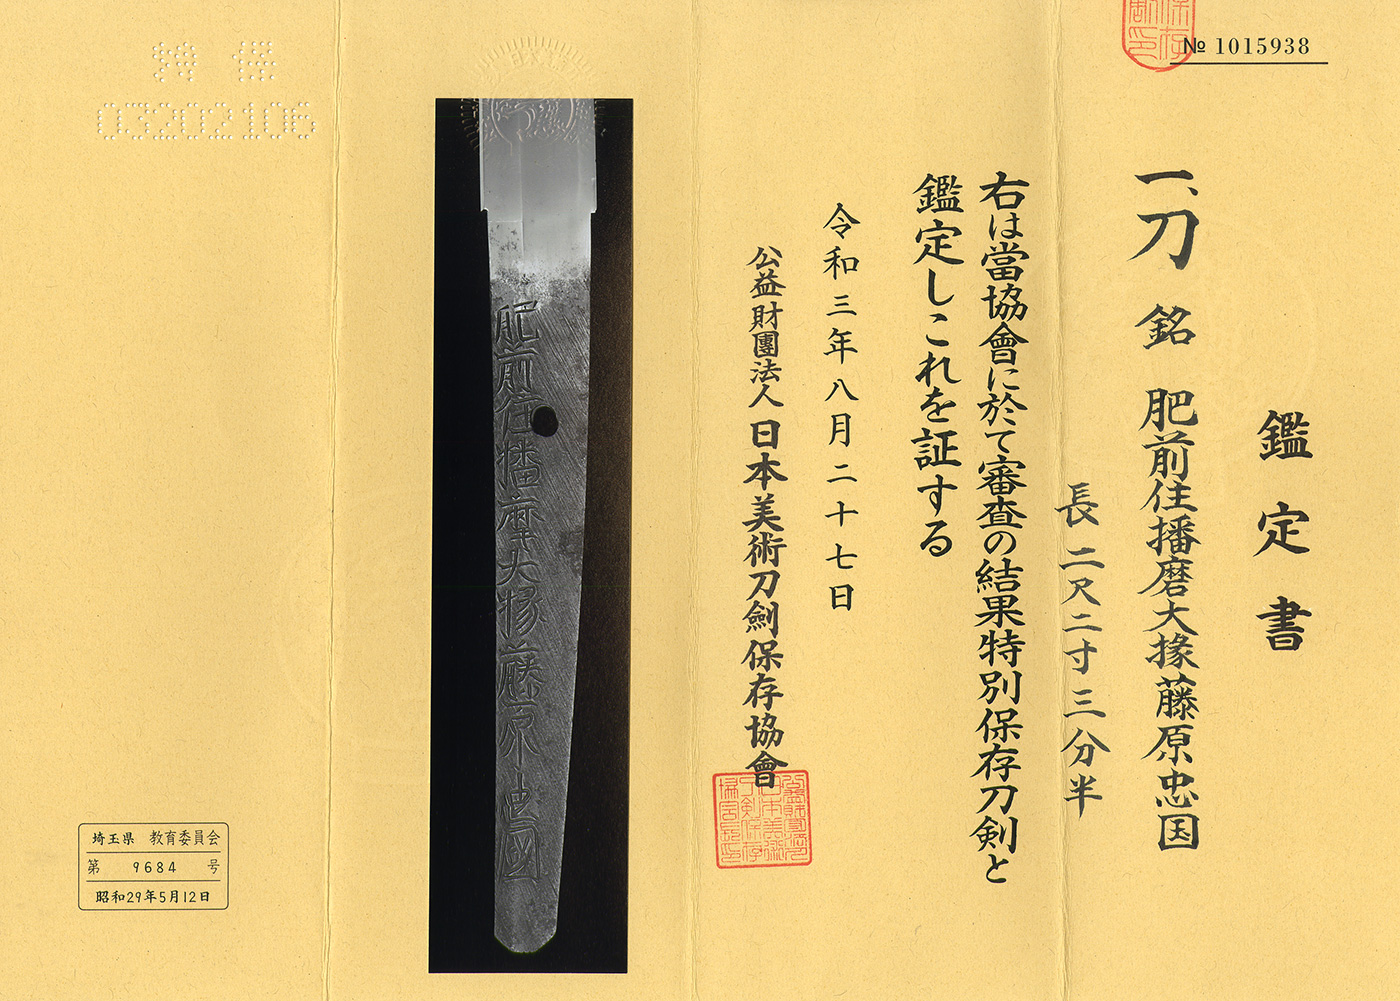 № 1015938
鑑定書
一、刀 銘 肥前住播磨大掾藤原忠国
長二尺二寸三分半
右は當協會に於て審査の結果特別保存刀剣と
鑑定しこれを証する
令和三年八月二十七日
公益財團法人日本美術刀劍保存協會
肥前住播磨大掾藤原忠國
特保
03202106
埼玉県 教育委員会
第 9684 号
昭和29年5月12日